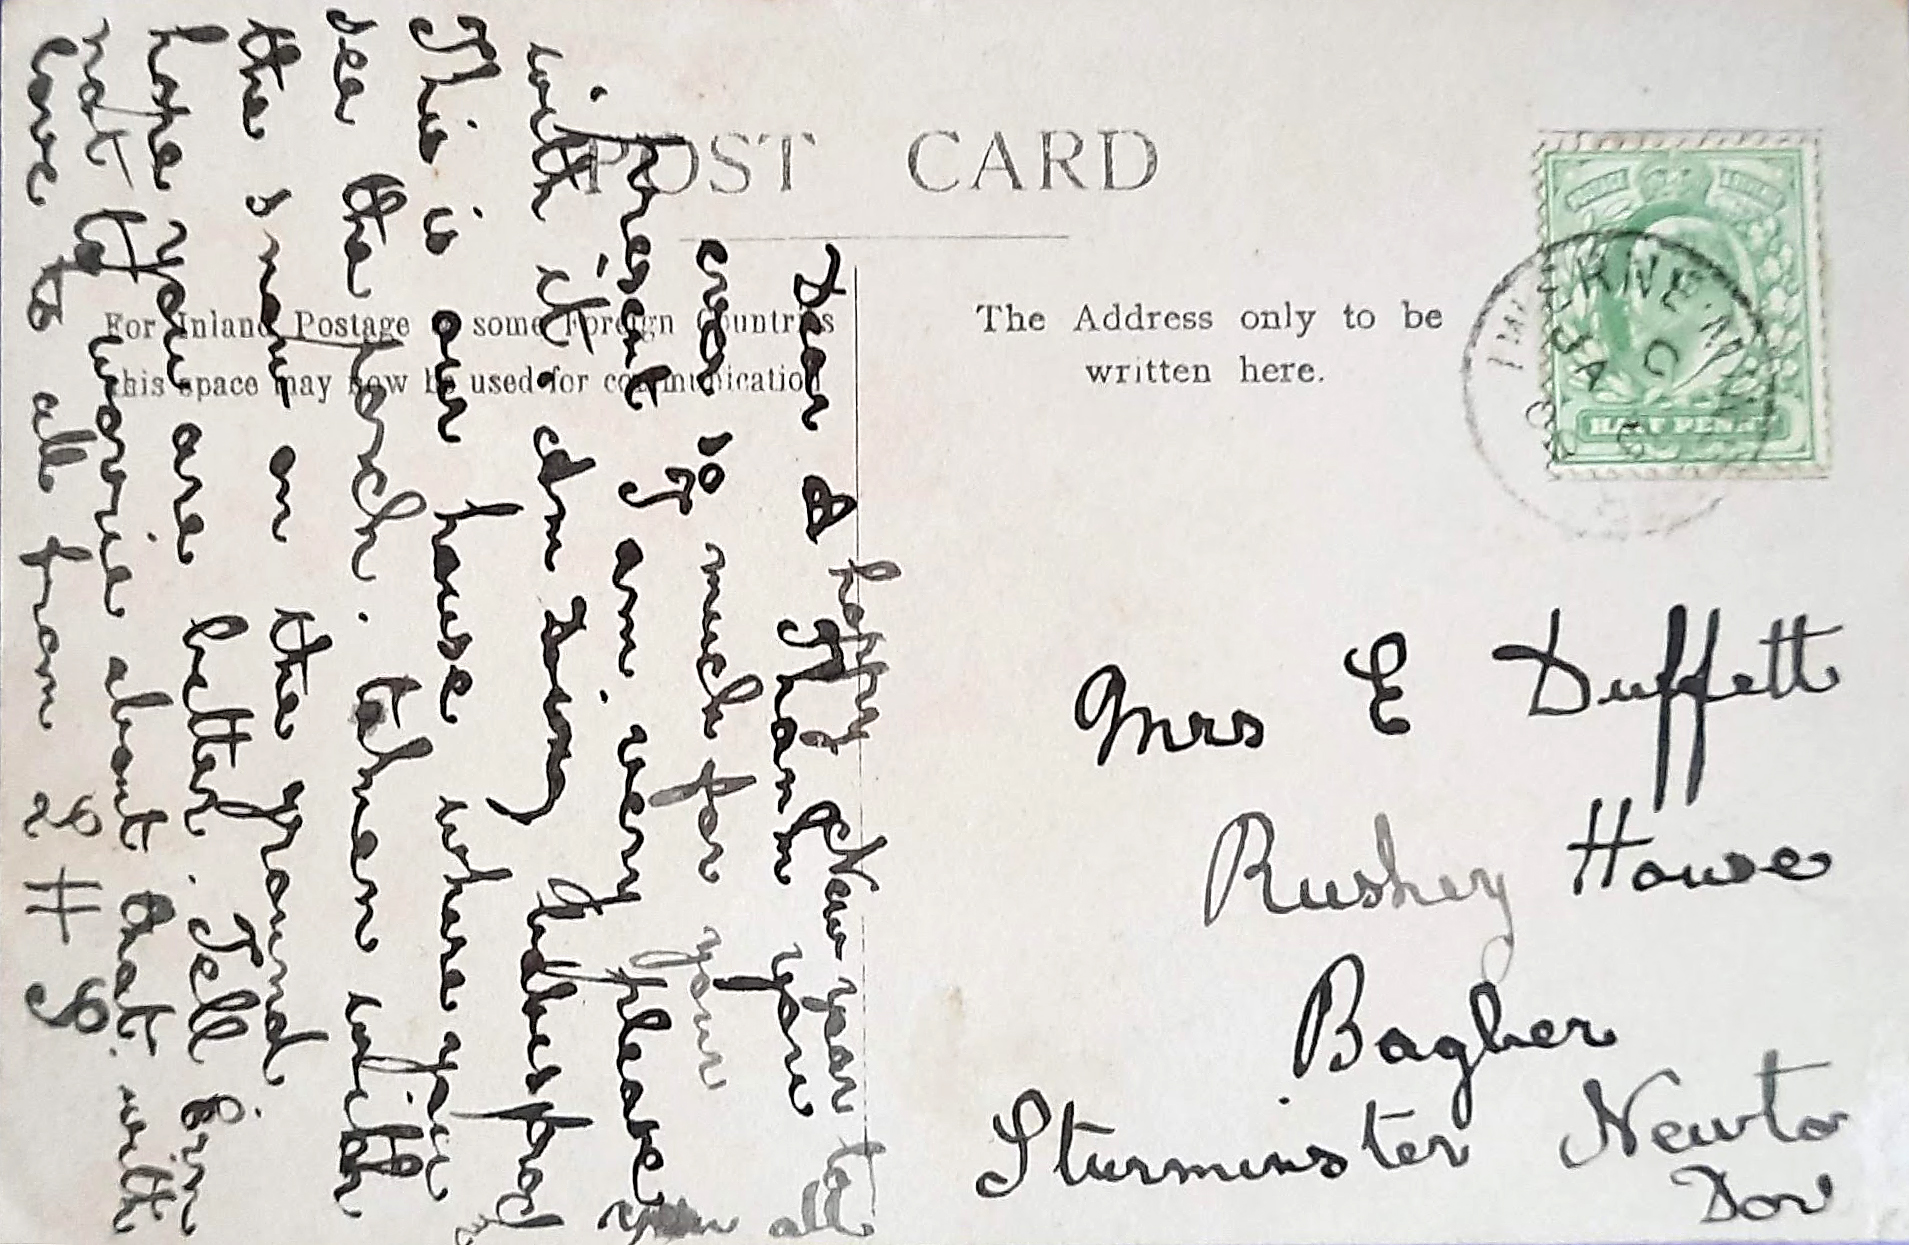 POST CARD
For Inland Postage some Foreign Countries
this space may now be used for communication
The Address only to be
written here.
HALF PENNY
IWERNE MIN
JA
Mrs E Duffett
Rushey House
Bagber
Sturminster Newto
Dor
happy New year to all
Dear A Thank you
ever so much for your
present I am very please
with it
This is our house where you
see the torch. taken with
the snow on the ground
hope you are better. Tell him
not to worrie about that. with
love to all from L H L